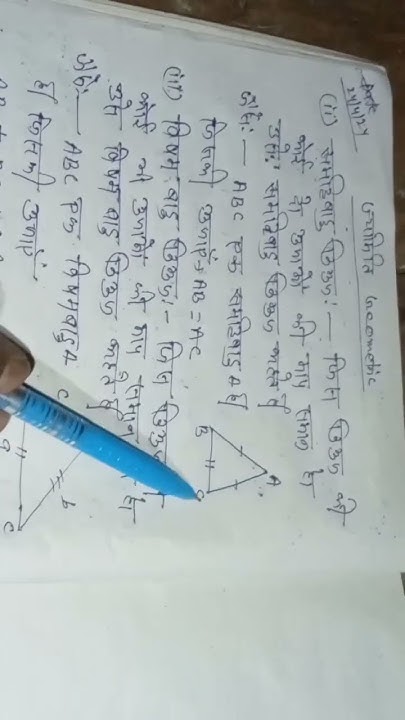 Date
24/4/24
ज्यामिति Geometric
(ii) समद्विबाहु त्रिभुज :— जिस त्रिभुज की
कोई दो भुजाओं की माप समान हो
उसे समद्विबाहु त्रिभुज कहते हैं
जैसे:— ABC एक समद्विबाहु Δ है
जिसकी भुजाएं = AB = AC
A
B
C
(iii) विषमबाहु त्रिभुज :— जिस त्रिभुज
कोई भी भुजाओं की माप समान न हो
उसे विषमबाहु त्रिभुज कहते हैं
जैसे:— ABC एक विषमबाहु Δ
है जिसकी भुजाएं
c
b
a
C